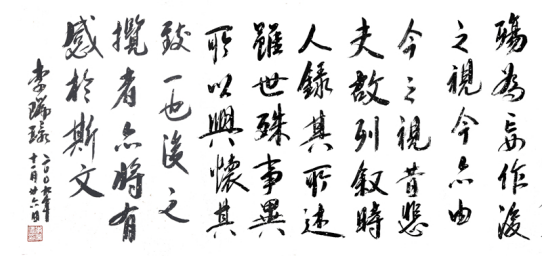 殤為妄作後
之視今亦由
今之視昔悲
夫故列敘時
人錄其所述
雖世殊事異
所以興懷其
致一也後之
攬者亦時有
感於斯文
李瑞
月廿六日